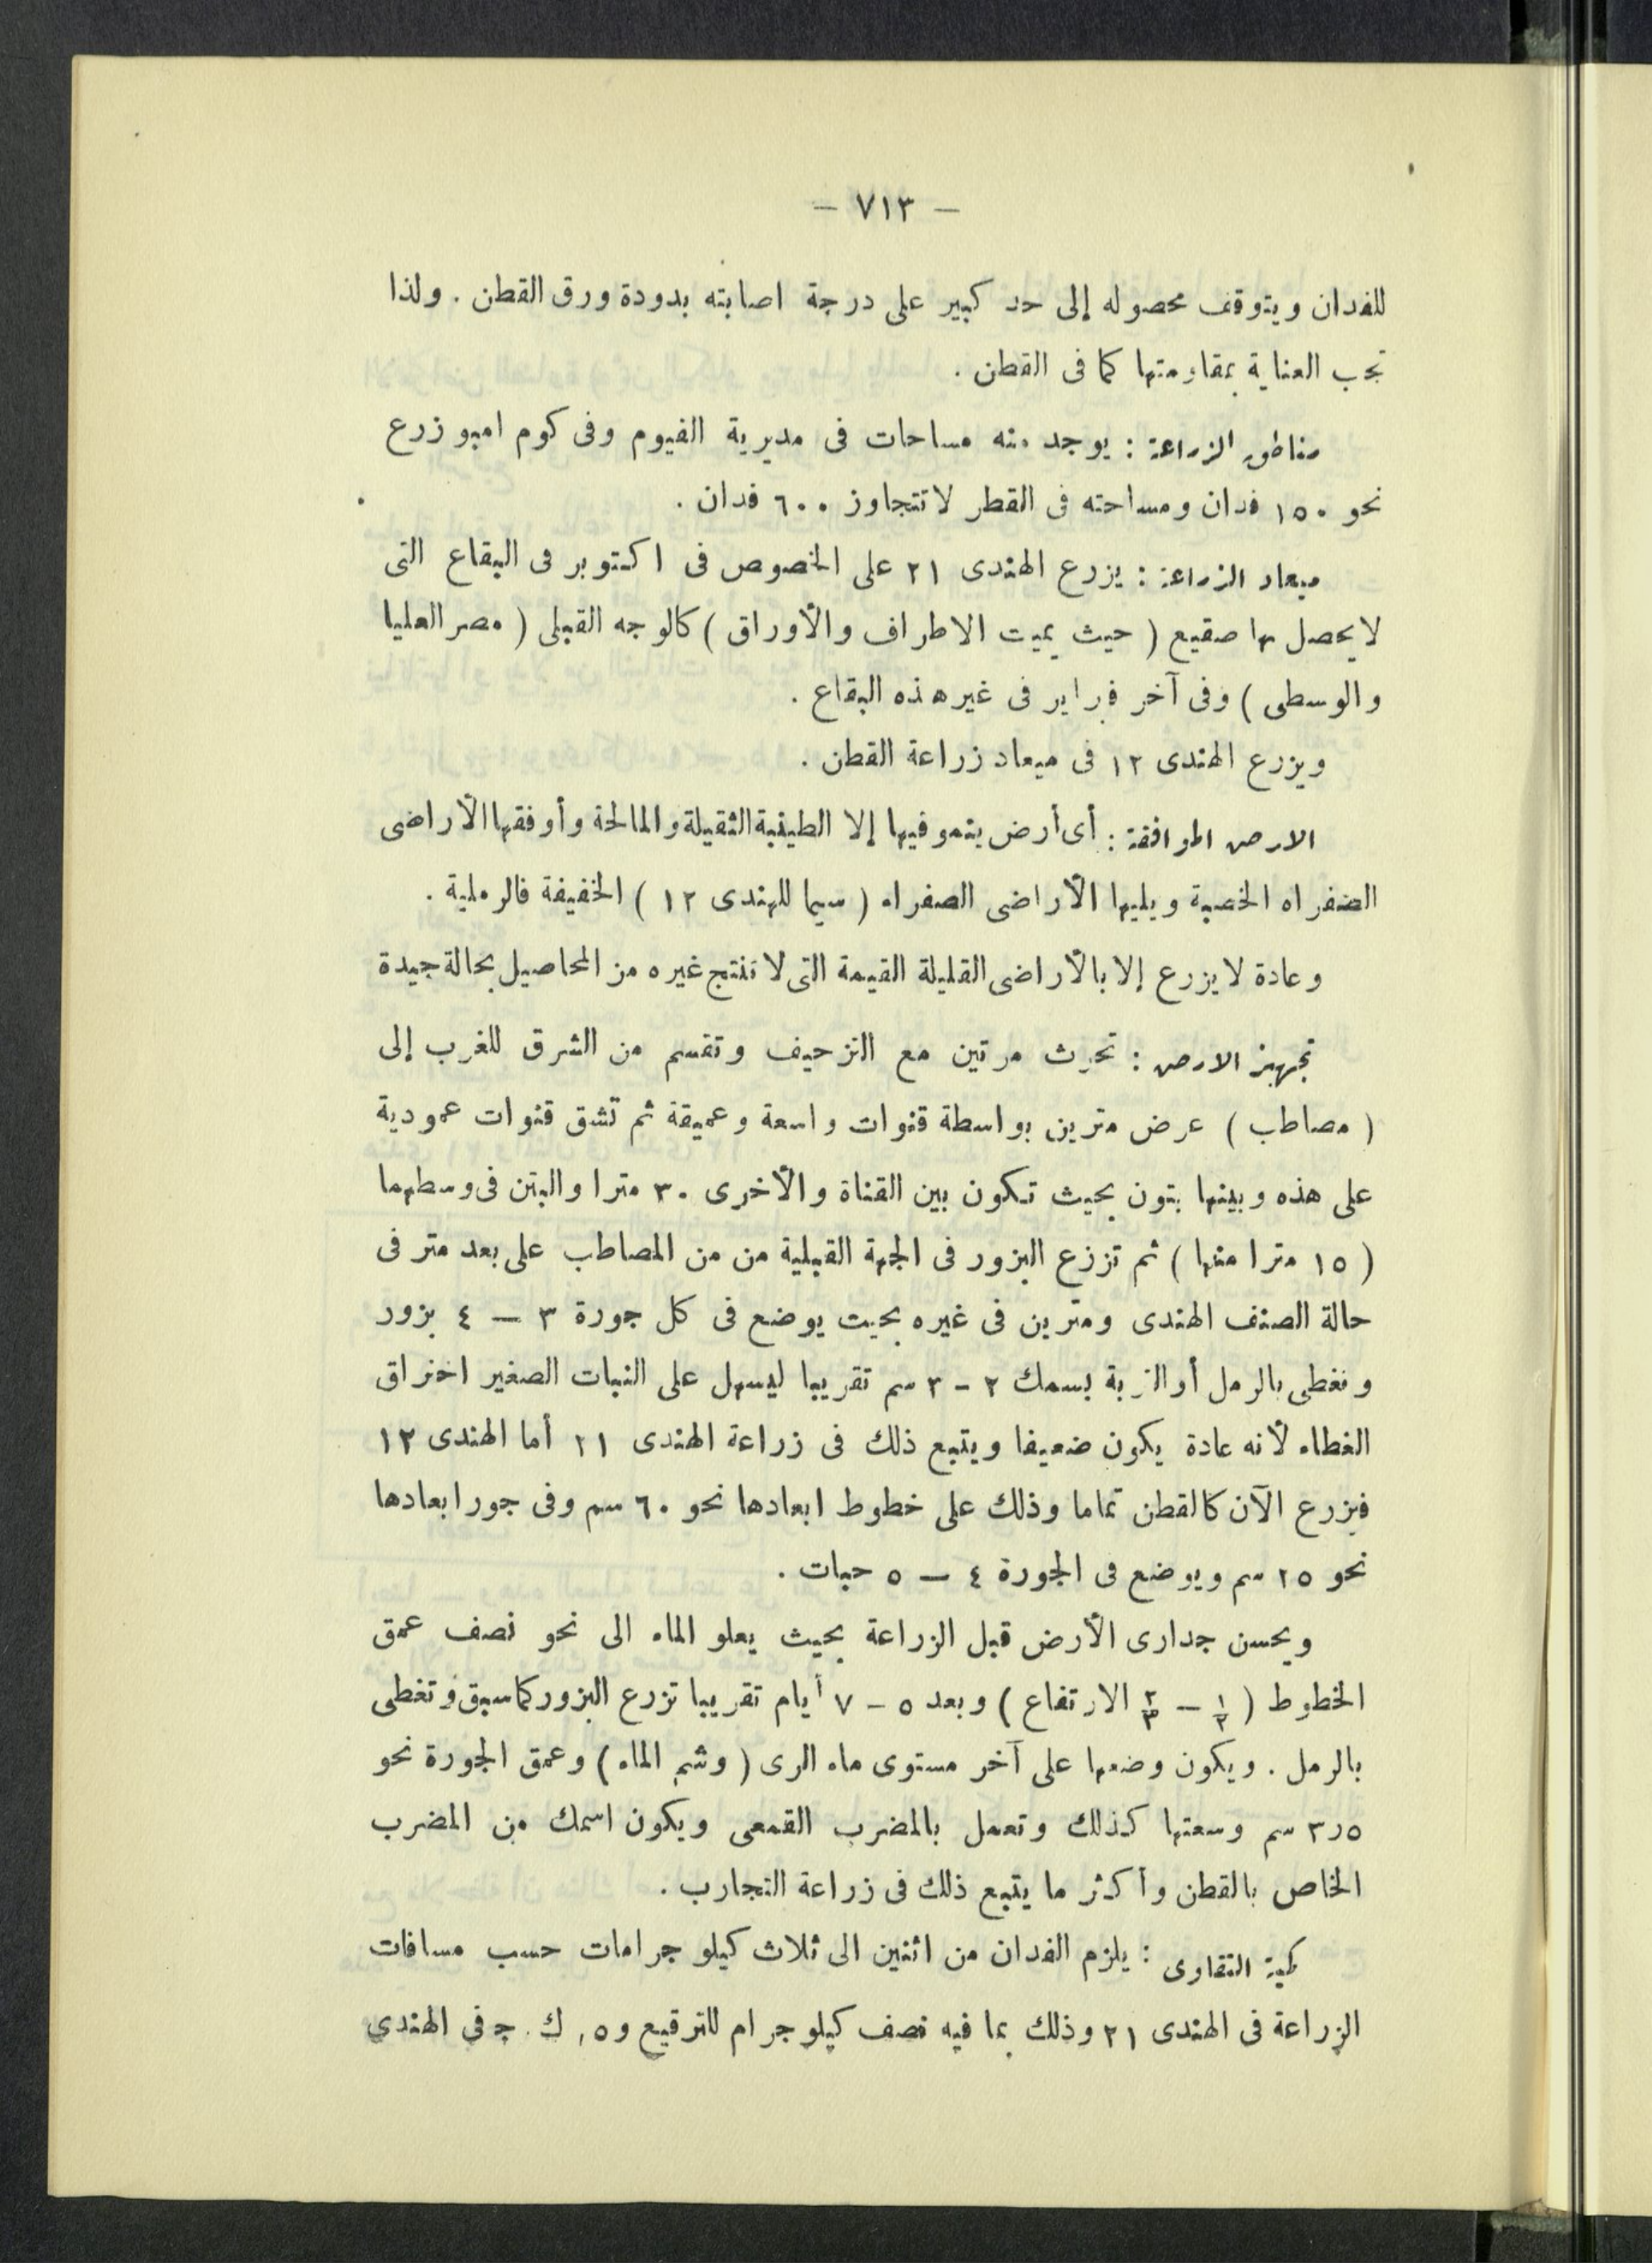 — ٧١٣ —
للفدان ويتوقف محصوله إلى حد كبير على درجة اصابته بدودة ورق القطن . ولذا
تجب العناية بمقاومتها كما فى القطن .
مناطق الزراعة : يوجد منه مساحات فى مديرية الفيوم وفى كوم امبو زرع
نحو ١٥٠ فدان ومساحته فى القطر لا تتجاوز ٦٠٠ فدان .
ميعاد الزراعة : يزرع الهندى ٢١ على الخصوص فى اكتوبر فى البقاع التى
لا يحصل بها صقيع ( حيث يميت الاطراف والأوراق ) كالوجه القبلى ( مصر العليا
والوسطى ) وفى آخر فبراير فى غير هذه البقاع .
ويزرع الهندى ١٢ فى ميعاد زراعة القطن .
الارض الموافقة : أى أرض ينمو فيها إلا الطينية الثقيلة والمالحة وأوفقها الأراضى
الصفراء الخصبة ويليها الأراضى الصفراء ( سيما للهندى ١٢ ) الخفيفة فالرملية .
وعادة لا يزرع إلا بالأراضى القليلة القيمة التى لا تنتج غيره من المحاصيل بحالة جيدة
تجهيز الارض : تحرث مرتين مع التزحيف وتقسم من الشرق للغرب إلى
( مصاطب ) عرض مترين بواسطة قنوات واسعة وعميقة ثم تشق قنوات عمودية
على هذه وبينها بتون بحيث تكون بين القناة والأخرى ٣٠ مترا والبتن فى وسطهما
( ١٥ مترا منها ) ثم تزرع البزور فى الجهة القبلية من من المصاطب على بعد متر فى
حالة الصنف الهندى ومترين فى غيره بحيث يوضع فى كل جورة ٣ — ٤ بزور
وتغطى بالرمل أو التربة بسمك ٢ - ٣ سم تقريبا ليسهل على النبات الصغير اختراق
الغطاء لأنه عادة يكون ضعيفا ويتبع ذلك فى زراعة الهندى ٢١ أما الهندى ١٢
فيزرع الآن كالقطن تماما وذلك على خطوط ابعادها نحو ٦٠ سم وفى جور ابعادها
نحو ٢٥ سم ويوضع فى الجورة ٤ — ٥ حبات .
ويحسن جدارى الأرض قبل الزراعة بحيث يعلو الماء الى نحو نصف عمق
الخطوط ( ١/٢ — ٢/٣ الارتفاع ) وبعد ٥ - ٧ أيام تقريبا تزرع البزور كما سبق وتغطى
بالرمل . ويكون وضعها على آخر مستوى ماء الرى ( وشم الماء ) وعمق الجورة نحو
٣٫٥ سم وسعتها كذلك وتعمل بالمضرب القمعى ويكون اسمك من المضرب
الخاص بالقطن وأكثر ما يتبع ذلك فى زراعة التجارب .
كمية التقاوى : يلزم الفدان من اثنين الى ثلاث كيلو جرامات حسب مسافات
الزراعة فى الهندى ٢١ وذلك بما فيه نصف كيلو جرام للترقيع و ٥, ك . ج فى الهندى